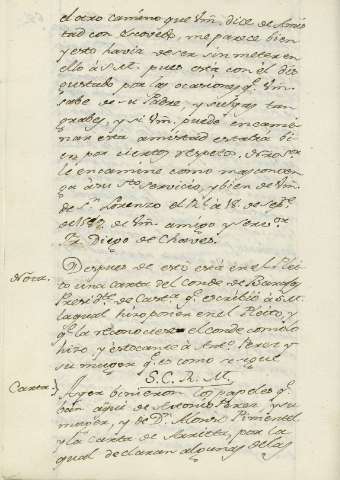 el otro camino que Vm. dice de Amis
tad con Escovedo, me parece bien
y esto havia de ser sin meter en
ello à S.M. pues està con èl dis
gustado por las ocasiones q.e Vm.
sabe de su Padre, y suegra tan
grabes, y si Vm. puede encami
nar esta amistad estaria bi
en por ciertos respetos. N.ro S.or
le encamine como mas conven
ga à su S.to servicio, y bien de Vm.
de S.n Lorenzo el R.l à 18. de Sep.e
de Vm. amigo y serv.or
Fr. Diego de Chaves.
Nota. Despues de esto està en el Plei
to una Carta del Conde de Barajas
Presid.te de Cast.a q.e escribiò à S.M.
la qual hizo poner en el Pleito, y
q.e la reconociese el conde como lo
hizo, y es tocante à Ant.o Perez y
su muger q.e es como se sigue
S.C.R.M.
Carta. Ayer binieron los papeles q.e
ban aqui de Antonio Perez, y su
muger, y de D.n Pimentel
y la carta de por la
qual declaran algunas de las